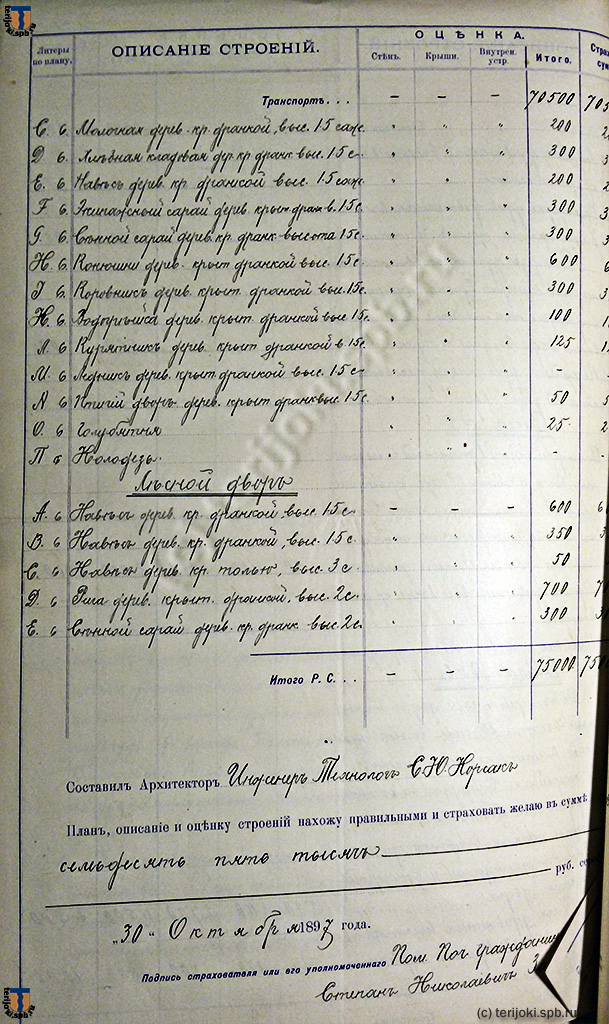 terijoki.spb.ru
Литеры по плану.
ОПИСАНІЕ СТРОЕНІЙ.
ОЦѢНКА.
Стѣнъ. Крыши. Внутрен. устр. Итого.
Транспортъ . . . – – – 70500
C. б. Молочная дерев. кр. дранкой, выс. 1.5 саж. " " " 200
D. б. Хлѣбная кладовая дер. кр. дранк. выс. 1.5 с. " " " 300
E. б. Навѣсъ дерев. кр. дранкой выс. 1.5 саж. " " " 200
F. б. Экипажный сарай дерев. крыт. дран. в. 1.5 с. " " " 300
G. б. Сѣнной сарай дерев. кр. дранк. высота 1.5 с. " " " 300
H. б. Конюшни дерев. крыт. дранкой выс. 1.5 с. " " " 600
I. б. Коровникъ дерев. крыт. дранкой выс. 1.5 с. " " " 300
К. б. дерев. крыт. дранкой выс. 1.5 с. " " " 100
Л. б. Курятникъ дерев. крыт. дранкой в. 1.5 с. " " " 125
М. б. Ледникъ дерев. крыт. дранкой выс. 1.5 с. " " " -
N. б. Птичій дворъ дерев. крыт. дранк. выс. 1.5 с. " " " 50
О. б. Голубятня " " " 25
П б Колодезь. " " " -
Лѣсной дворъ
А. б Навѣсъ дерев. кр. дранкой, выс. 1.5 с. – – – 600
В. б Навѣсъ дерев. кр. дранкой, выс. 1.5 с. " " " 350
С. б Навѣсъ дерев. кр. толью, выс. 3 с. " " " 50
D. б Рига дерев. крыт. дранкой, выс. 2 с. " " " 700
Е. б Сѣнной сарай дерев. кр. дранк. выс. 2 с. " " " 300
Итого Р. С. . . – – – 75000
Составилъ Архитекторъ Инженеръ Технологъ С. Ю.
Планъ, описаніе и оцѣнку строеній нахожу правильными и страховать желаю въ суммѣ
семьдесятъ пять тысячъ
руб.
„30" Октября 1897 года.
Подпись страхователя или его уполномоченнаго Пот. Поч. Гражданинъ
Степанъ Николаевичъ
(c) terijoki.spb.ru